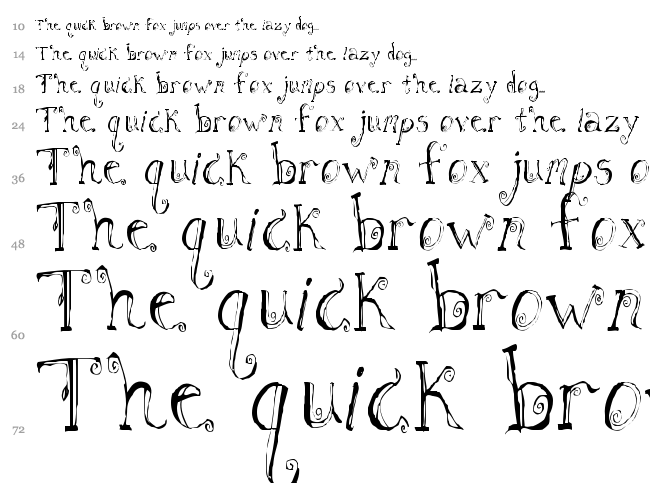 10 The quick brown fox jumps over the lazy dog.
14 The quick brown fox jumps over the lazy dog.
18 The quick brown fox jumps over the lazy dog.
24 The quick brown fox jumps over the lazy
36 The quick brown fox jumps o
48 The quick brown fox
60 The quick brown
72 The quick bro